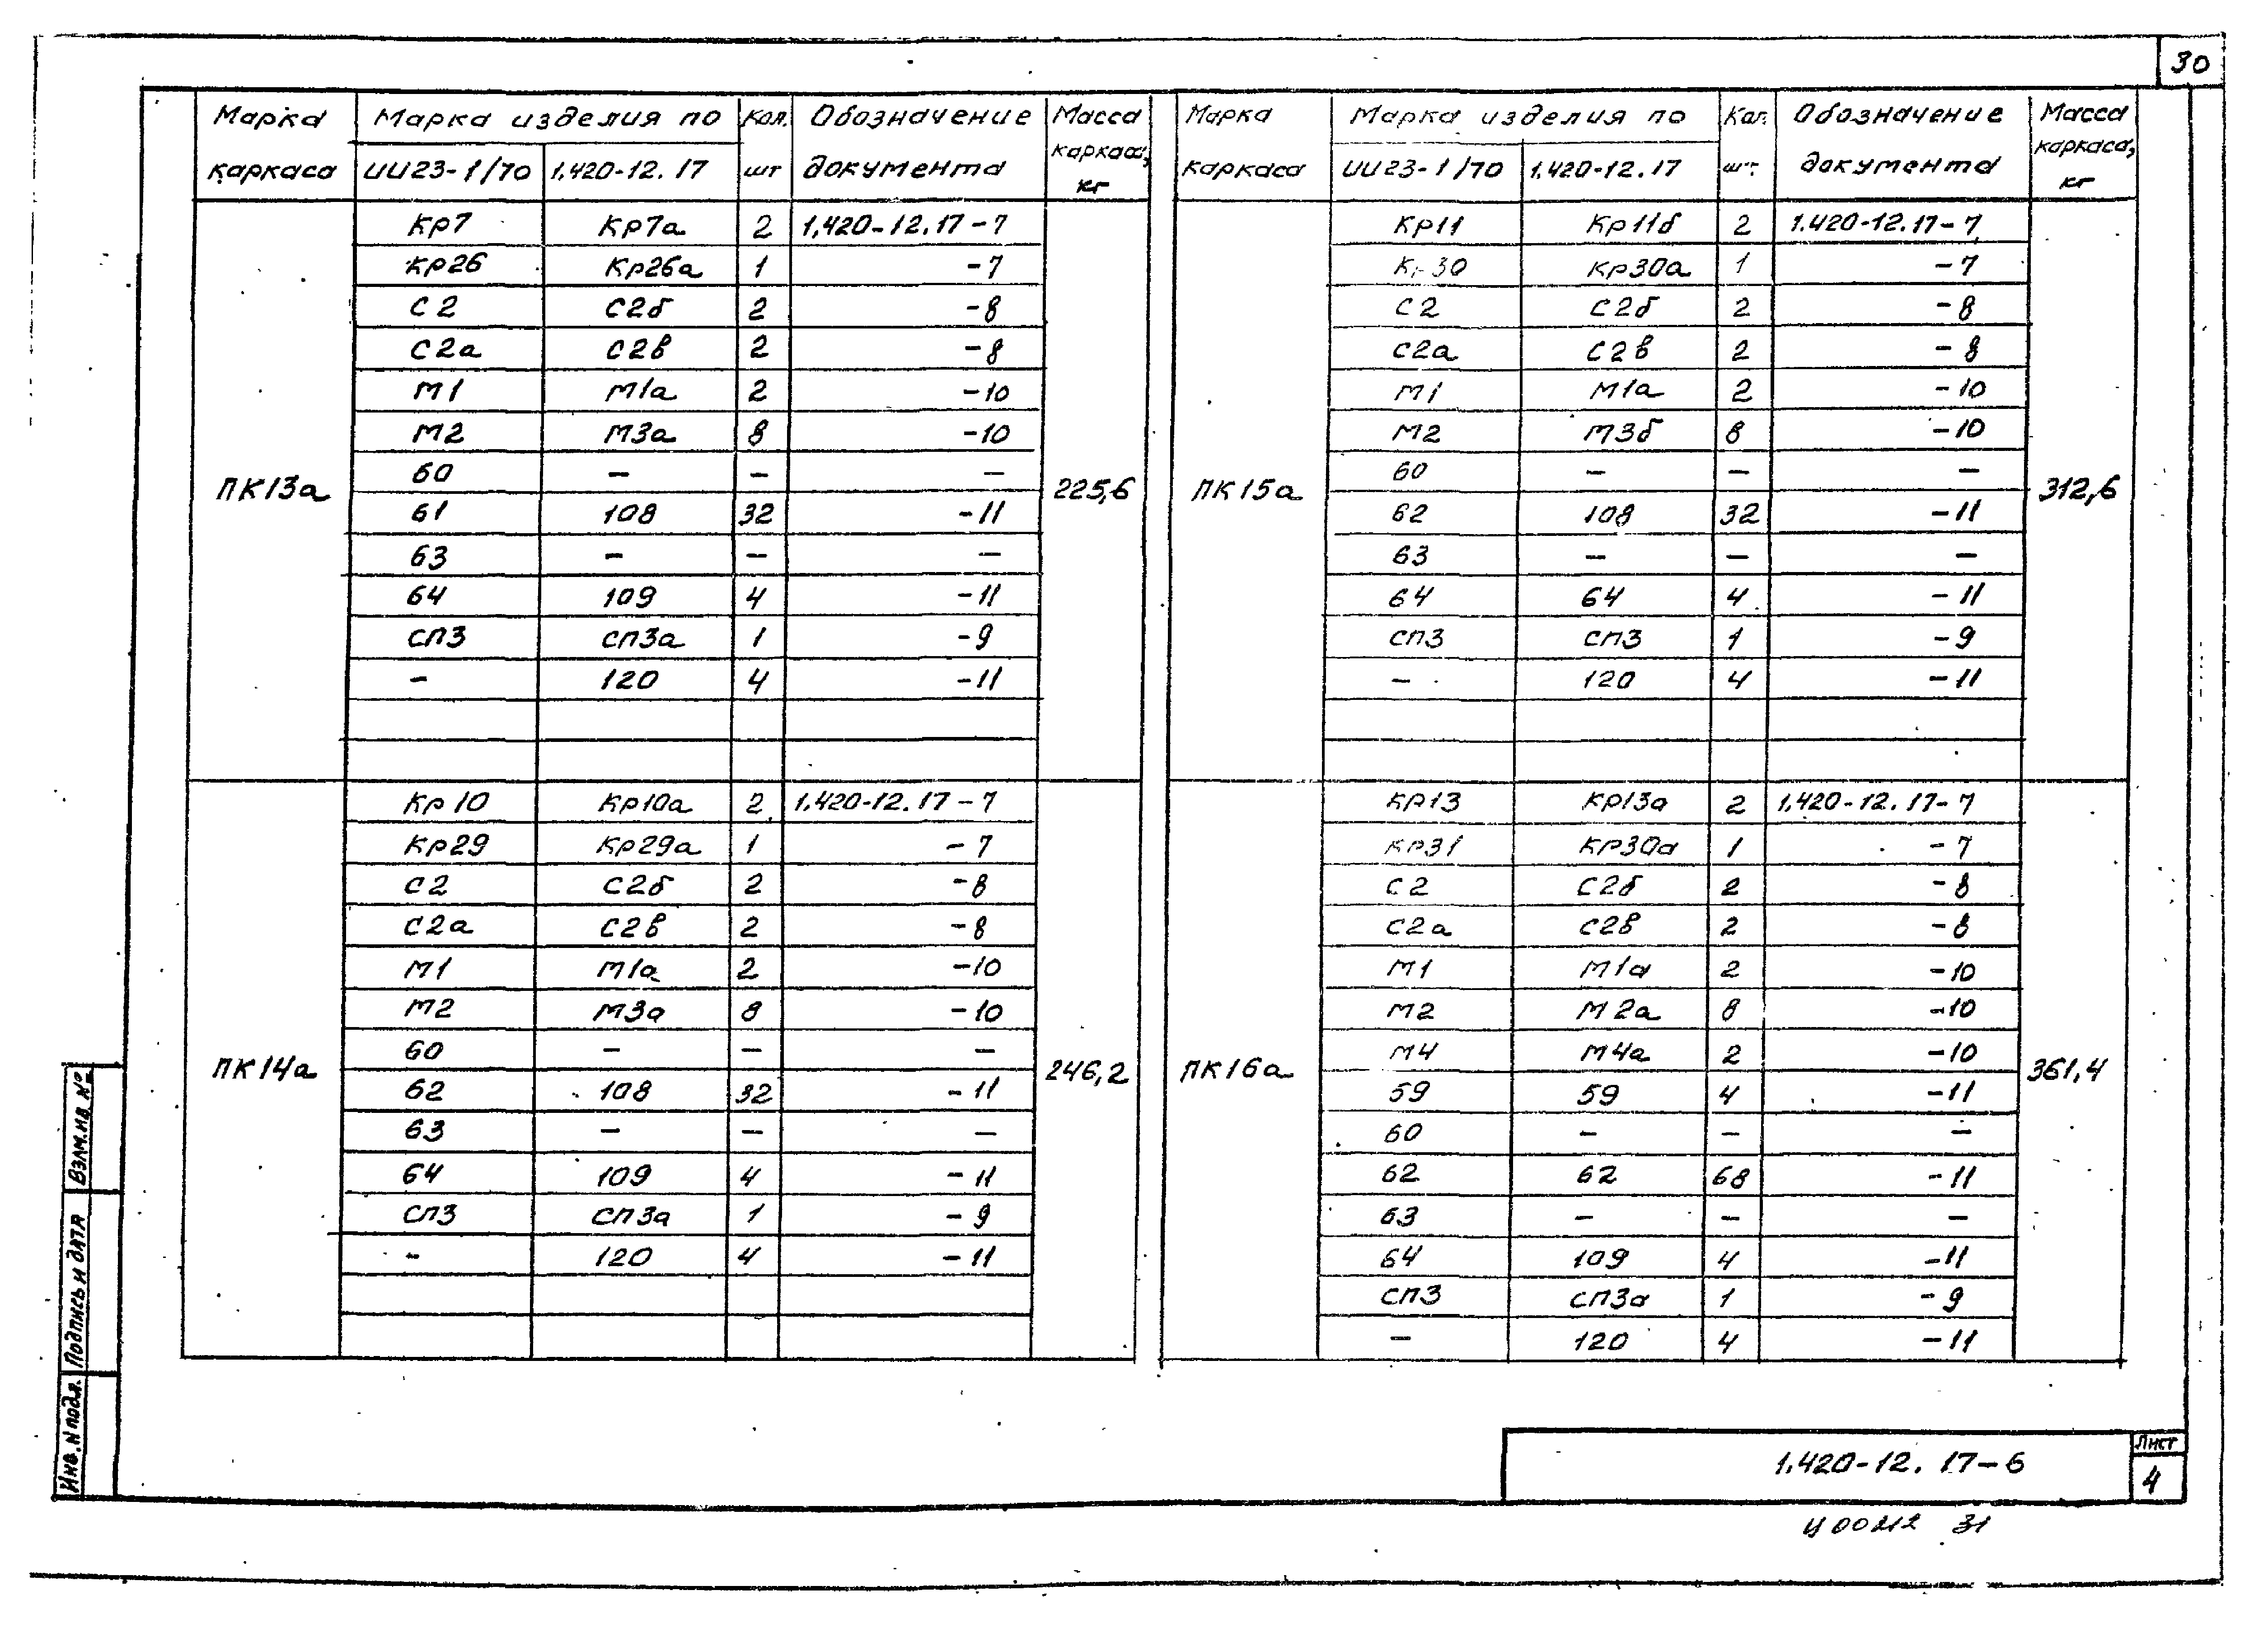 30
Марка каркаса | Марка изделия по | Кол. шт | Обозначение документа | Масса каркаса, кг
ИИ23-1/70 | 1.420-12.17
ПК13а | 225,6
Кр7 | Кр7а | 2 | 1.420-12.17-7
Кр26 | Кр26а | 1 | -7
С2 | С2б | 2 | -8
С2а | С2в | 2 | -8
М1 | М1а | 2 | -10
М2 | М3а | 8 | -10
60 | — | — | —
61 | 108 | 32 | -11
63 | — | — | —
64 | 109 | 4 | -11
СП3 | СП3а | 1 | -9
— | 120 | 4 | -11
ПК14а | 246,2
Кр10 | Кр10а | 2 | 1.420-12.17-7
Кр29 | Кр29а | 1 | -7
С2 | С2б | 2 | -8
С2а | С2в | 2 | -8
М1 | М1а | 2 | -10
М2 | М3а | 8 | -10
60 | — | — | —
62 | 108 | 32 | -11
63 | — | — | —
64 | 109 | 4 | -11
СП3 | СП3а | 1 | -9
— | 120 | 4 | -11
Марка каркаса | Марка изделия по | Кол. шт. | Обозначение документа | Масса каркаса, кг
ИИ23-1/70 | 1.420-12.17
ПК15а | 312,6
Кр11 | Кр11б | 2 | 1.420-12.17-7
Кр30 | Кр30а | 1 | -7
С2 | С2б | 2 | -8
С2а | С2в | 2 | -8
М1 | М1а | 2 | -10
М2 | М3б | 8 | -10
60 | — | — | —
62 | 108 | 32 | -11
63 | — | — | —
64 | 64 | 4 | -11
СП3 | СП3 | 1 | -9
— | 120 | 4 | -11
ПК16а | 361,4
Кр13 | Кр13а | 2 | 1.420-12.17-7
Кр31 | Кр30а | 1 | -7
С2 | С2б | 2 | -8
С2а | С2в | 2 | -8
М1 | М1а | 2 | -10
М2 | М2а | 8 | -10
М4 | М4а | 2 | -10
59 | 59 | 4 | -11
60 | — | — | —
62 | 62 | 68 | -11
63 | — | — | —
64 | 109 | 4 | -11
СП3 | СП3а | 1 | -9
— | 120 | 4 | -11
Инв. N подл. | Подпись и дата | Взам. инв. №
1.420-12.17-6
Лист
4
Ц00212 31